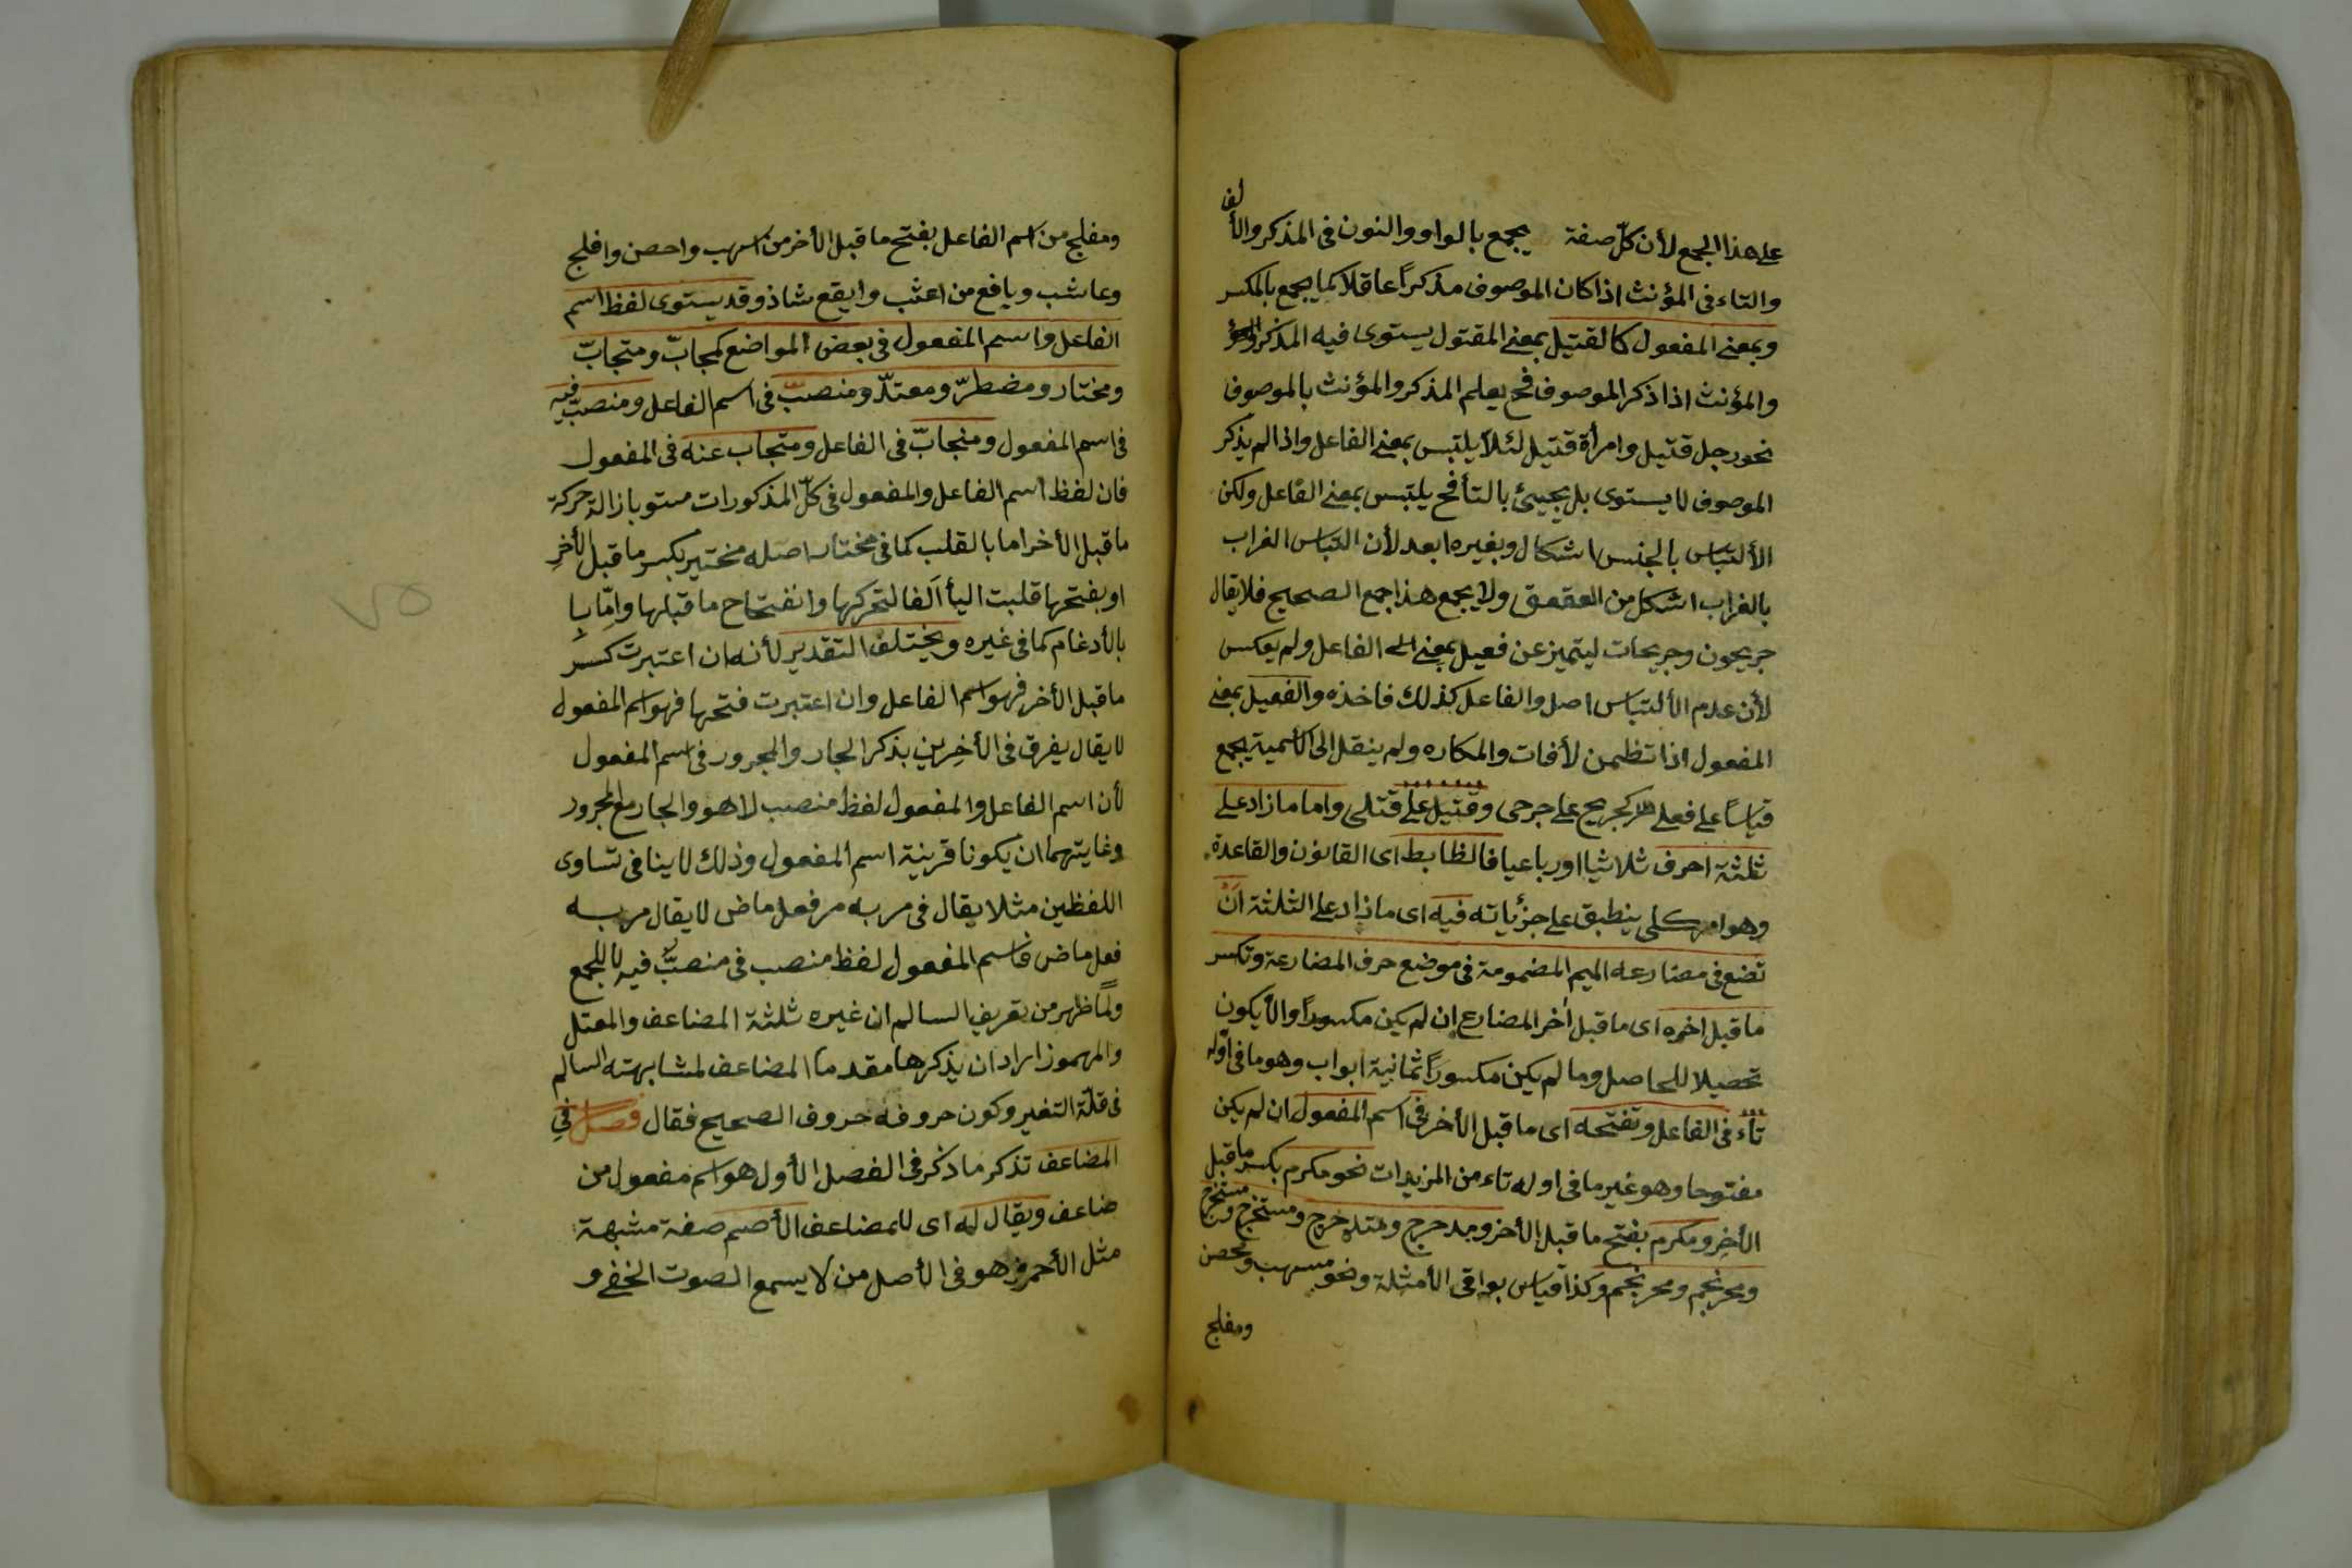 على هذا الجمع لأن كلّ صفة يجمع بالواو والنون فى المذكر والألف
والتاء فى المؤنث اذا كان الموصوف مذكراً عاقلا كما يجمع بالمكسر
وبمعنى المفعول كالقتيل بمعنى المقتول يستوى فيه المذكر
والمؤنث اذا ذكر الموصوف فح يعلم المذكر والمؤنث بالموصوف
نحو رجل قتيل وامرأة قتيل لئلا يلتبس بمعنى الفاعل واذا لم يذكر
الموصوف لا يستوى بل يجيئ بالتأ فح يلتبس بمعنى الفاعل ولكن
الألتباس بالجنس اشكال وبغيره ابعد لأن التباس الغراب
بالغراب اشكل من العقعق ولا يجمع هذا جمع الصحيح فلا يقال
جريحون وجريحات ليتميز عن فعيل بمعنى الفاعل ولم يعكس
لأن عدم الألتباس اصل والفاعل كذلك فاخذه والفعيل بمعنى
المفعول اذا تظمن لأفات والمكاره ولم ينقل الى الأسمية يجمع
قياسًا على فعلى كجريح على جرحى وقتيل على قتلى واما ما زاد على
ثلثة احرف ثلاثيا او رباعيا فالظابط اى القانون والقاعدة
وهو امر كلى ينطبق على جزئياته فيه اى ما زاد على الثلثة اَنْ
تضع فى مضارعه الميم المضمومة فى موضع حرف المضارعة وتكسر
ما قبل اخره اى ما قبل اٰخر المضارع إن لم يكن مكسورًا والأ يكون
تحصيلا للحاصل وما لم يكن مكسورًا ثمانية ابواب وهو ما فى اوله
تاء فى الفاعل وتفتحه اى ما قبل الأخر فى اسم المفعول ان لم يكن
مفتوحا وهو غير ما فى اوله تاء من المزيدات نحو مكرم بكسر ما قبل
الأخِر ومكرم بفتح ما قبل الأخر ومدحرج ومتدحرج ومستخرج ومستخرج
ومحرنجم ومحرنجم وكذا قياس بواقى الأمثلة ونحو مسهب ومحصن
ومفلج
ومفلج من اسم الفاعل بفتح ما قبل الأخر من اسهب واحصن وافلج
وعاشب ويافع من اعشب وايفع شاذ وقد يستوى لفظ اسم
الفاعل واسم المفعول فى بعض المواضع كمحابّ ومتحابّ
ومختار ومضطرّ ومعتدّ ومنصبّ فى اسم الفاعل ومنصبّ فيه
فى اسم المفعول ومنجابّ فى الفاعل ومنجاب عنه فى المفعول
فان لفظ اسم الفاعل والمفعول فى كلّ المذكورات مستو بازالة حركة
ما قبل الأخر اما بالقلب كما فى مختار اصله مختير بكسر ما قبل الأخِر
او بفتحها قلبت اليأ اَلفا لتحركها وانفتاح ما قبلها وامّا با
بالأدغام كما فى غيره ويختلف التقدير لأنه ان اعتبرت كسر
ما قبل الأخر فهو اسم الفاعل وان اعتبرت فتحها فهو اسم المفعول
لا يقال يفرق فى الأخِرين بذكر الجار والمجرور فى اسم المفعول
لأن اسم الفاعل والمفعول لفظ منصب لا هو والجار مع المجرور
وغايتهما ان يكونا قرينة اسم المفعول وذلك لا ينافى تساوى
اللفظين مثلا يقال فى مر به مر فعل ماض لا يقال مر به
فعل ماض فاسم المفعول لفظ منصب فى منصبّ فيه لا للجمع
ولمّا ظهر من تعريف السالم ان غيره ثلثة المضاعف والمعتل
والمهموز اراد ان يذكرها مقدما المضاعف لمشابهته السالم
فى قلّة التغير وكون حروفه حروف الصحيح فقال فصل فى
المضاعف تذكر ما ذكر فى الفصل الأول هو اسم مفعول من
ضاعف ويقال له اى للمضاعف الأصم صفة مشبهة
مثل الأحمر وهو فى الأصل من لا يسمع الصوت الخفى و